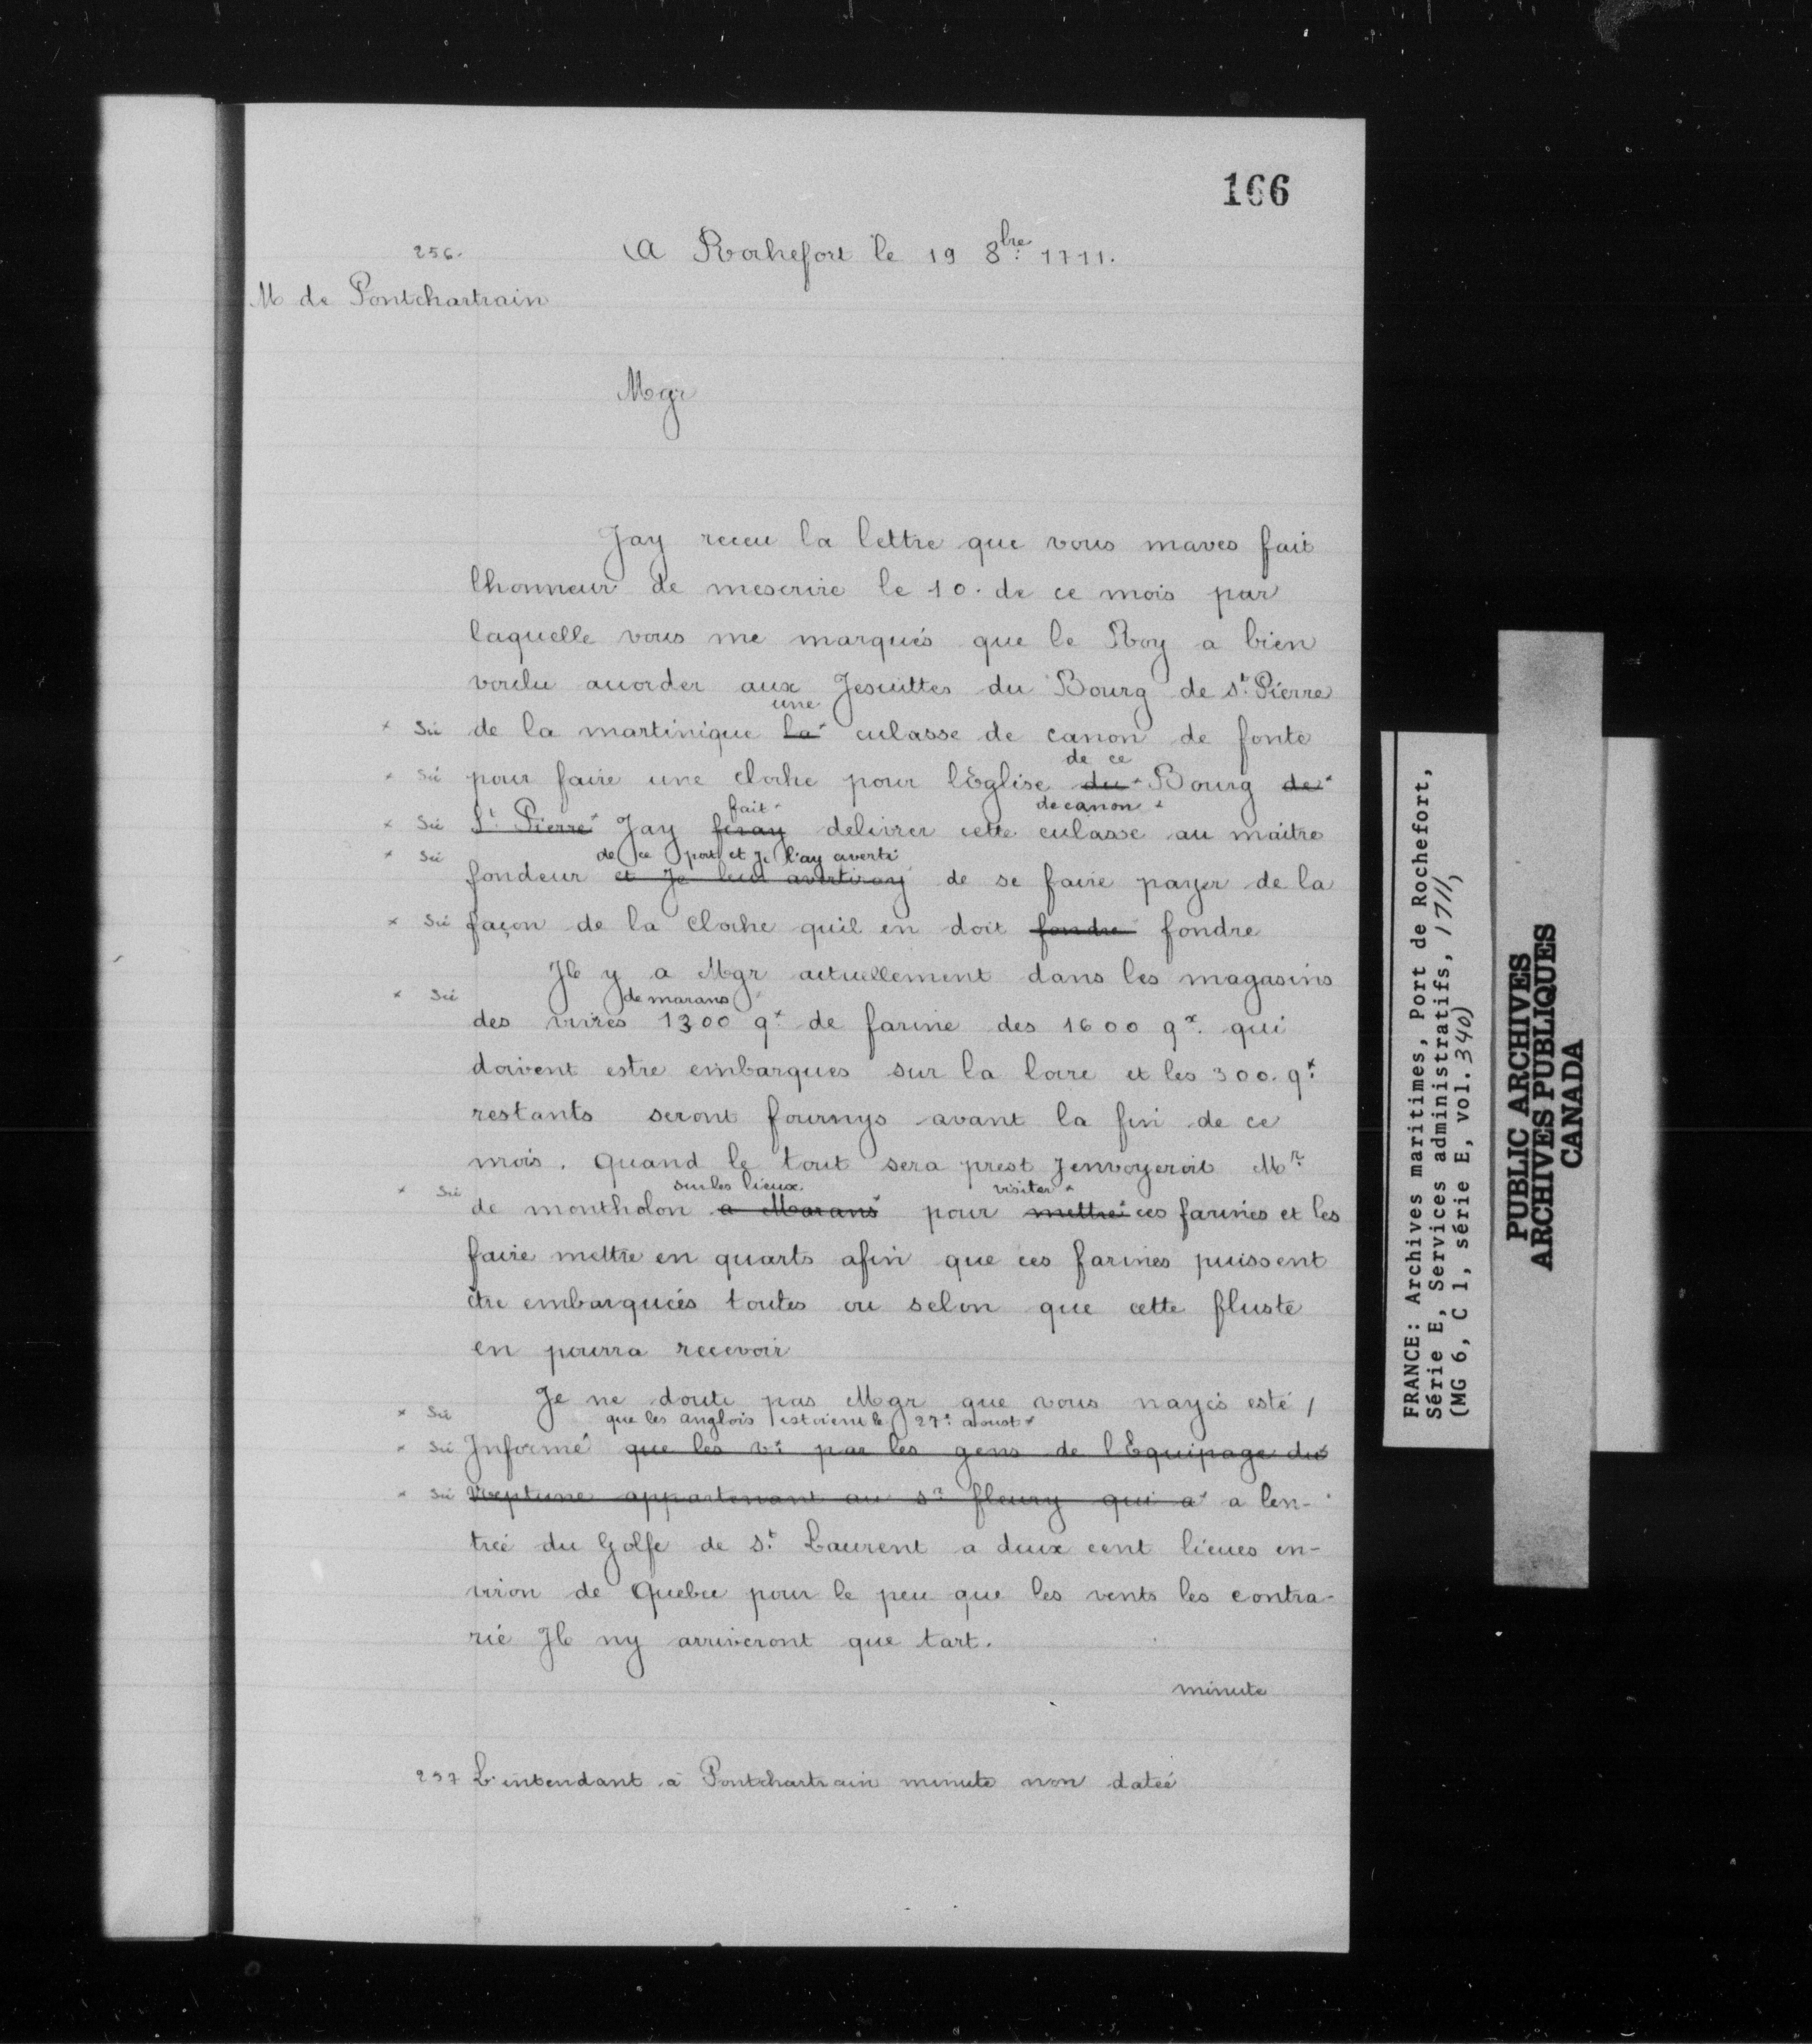 166
256.
A Rochefort le 19 8bre: 1711.
M de Pontchartrain
Mgr
Jay receu la lettre que vous maves fait
lhonneur de mescrire le 10. de ce mois par
laquelle vous me marqués que le Roy a bien
voulu accorder aux Jesuittes du Bourg de St. Pierre
une
× Sic de la martinique La× culasse de canon de fonte
de ce
× Sic pour faire une cloche pour lEglise du× Bourg de×
fait× de canon ×
× Sic St. Pierre× Jay feray delivrer cette culasse au maitre
de ce port et Je l'ay averti
× Sic fondeur et Je leur avertiray de se faire payer de la
× Sic façon de la cloche quil en doit fondre fondre
Il y a Mgr actuellement dans les magasins
de marans
× Sic des vivres 1300 qx de farine des 1600 qx. qui
doivent estre embarques sur la loire et les 300. qx
restants seront fournys avant la fin de ce
mois. Quand le tout sera prest Jenvoyeroit Mr.
sur les lieux visiter ×
× Sic de montholon a Marans× pour mettre× ces farines et les
faire mettre en quarts afin que ces farines puissent
être embarquées toutes ou selon que cette fluste
en pourra recevoir
Je ne doute pas Mgr que vous nayés esté /
× Sic que les anglois estoient le 27e aoust ×
× Sic Informé que les vt par les gens de l Equipage du×
× Sic Neptune appartenant au sr fleury qui a× a len-
trée du Golfe de St. Laurent a deux cent lieues en-
viron de Quebec pour le peu que les vents les contra-
rie Il ny arriveront que tart.
minute
257 L'intendant à Pontchartrain minute non datée
FRANCE: Archives maritimes, Port de Rochefort,
Série E, Services administratifs, 1711,
(MG 6, C 1, série E, vol. 340)
PUBLIC ARCHIVES
ARCHIVES PUBLIQUES
CANADA